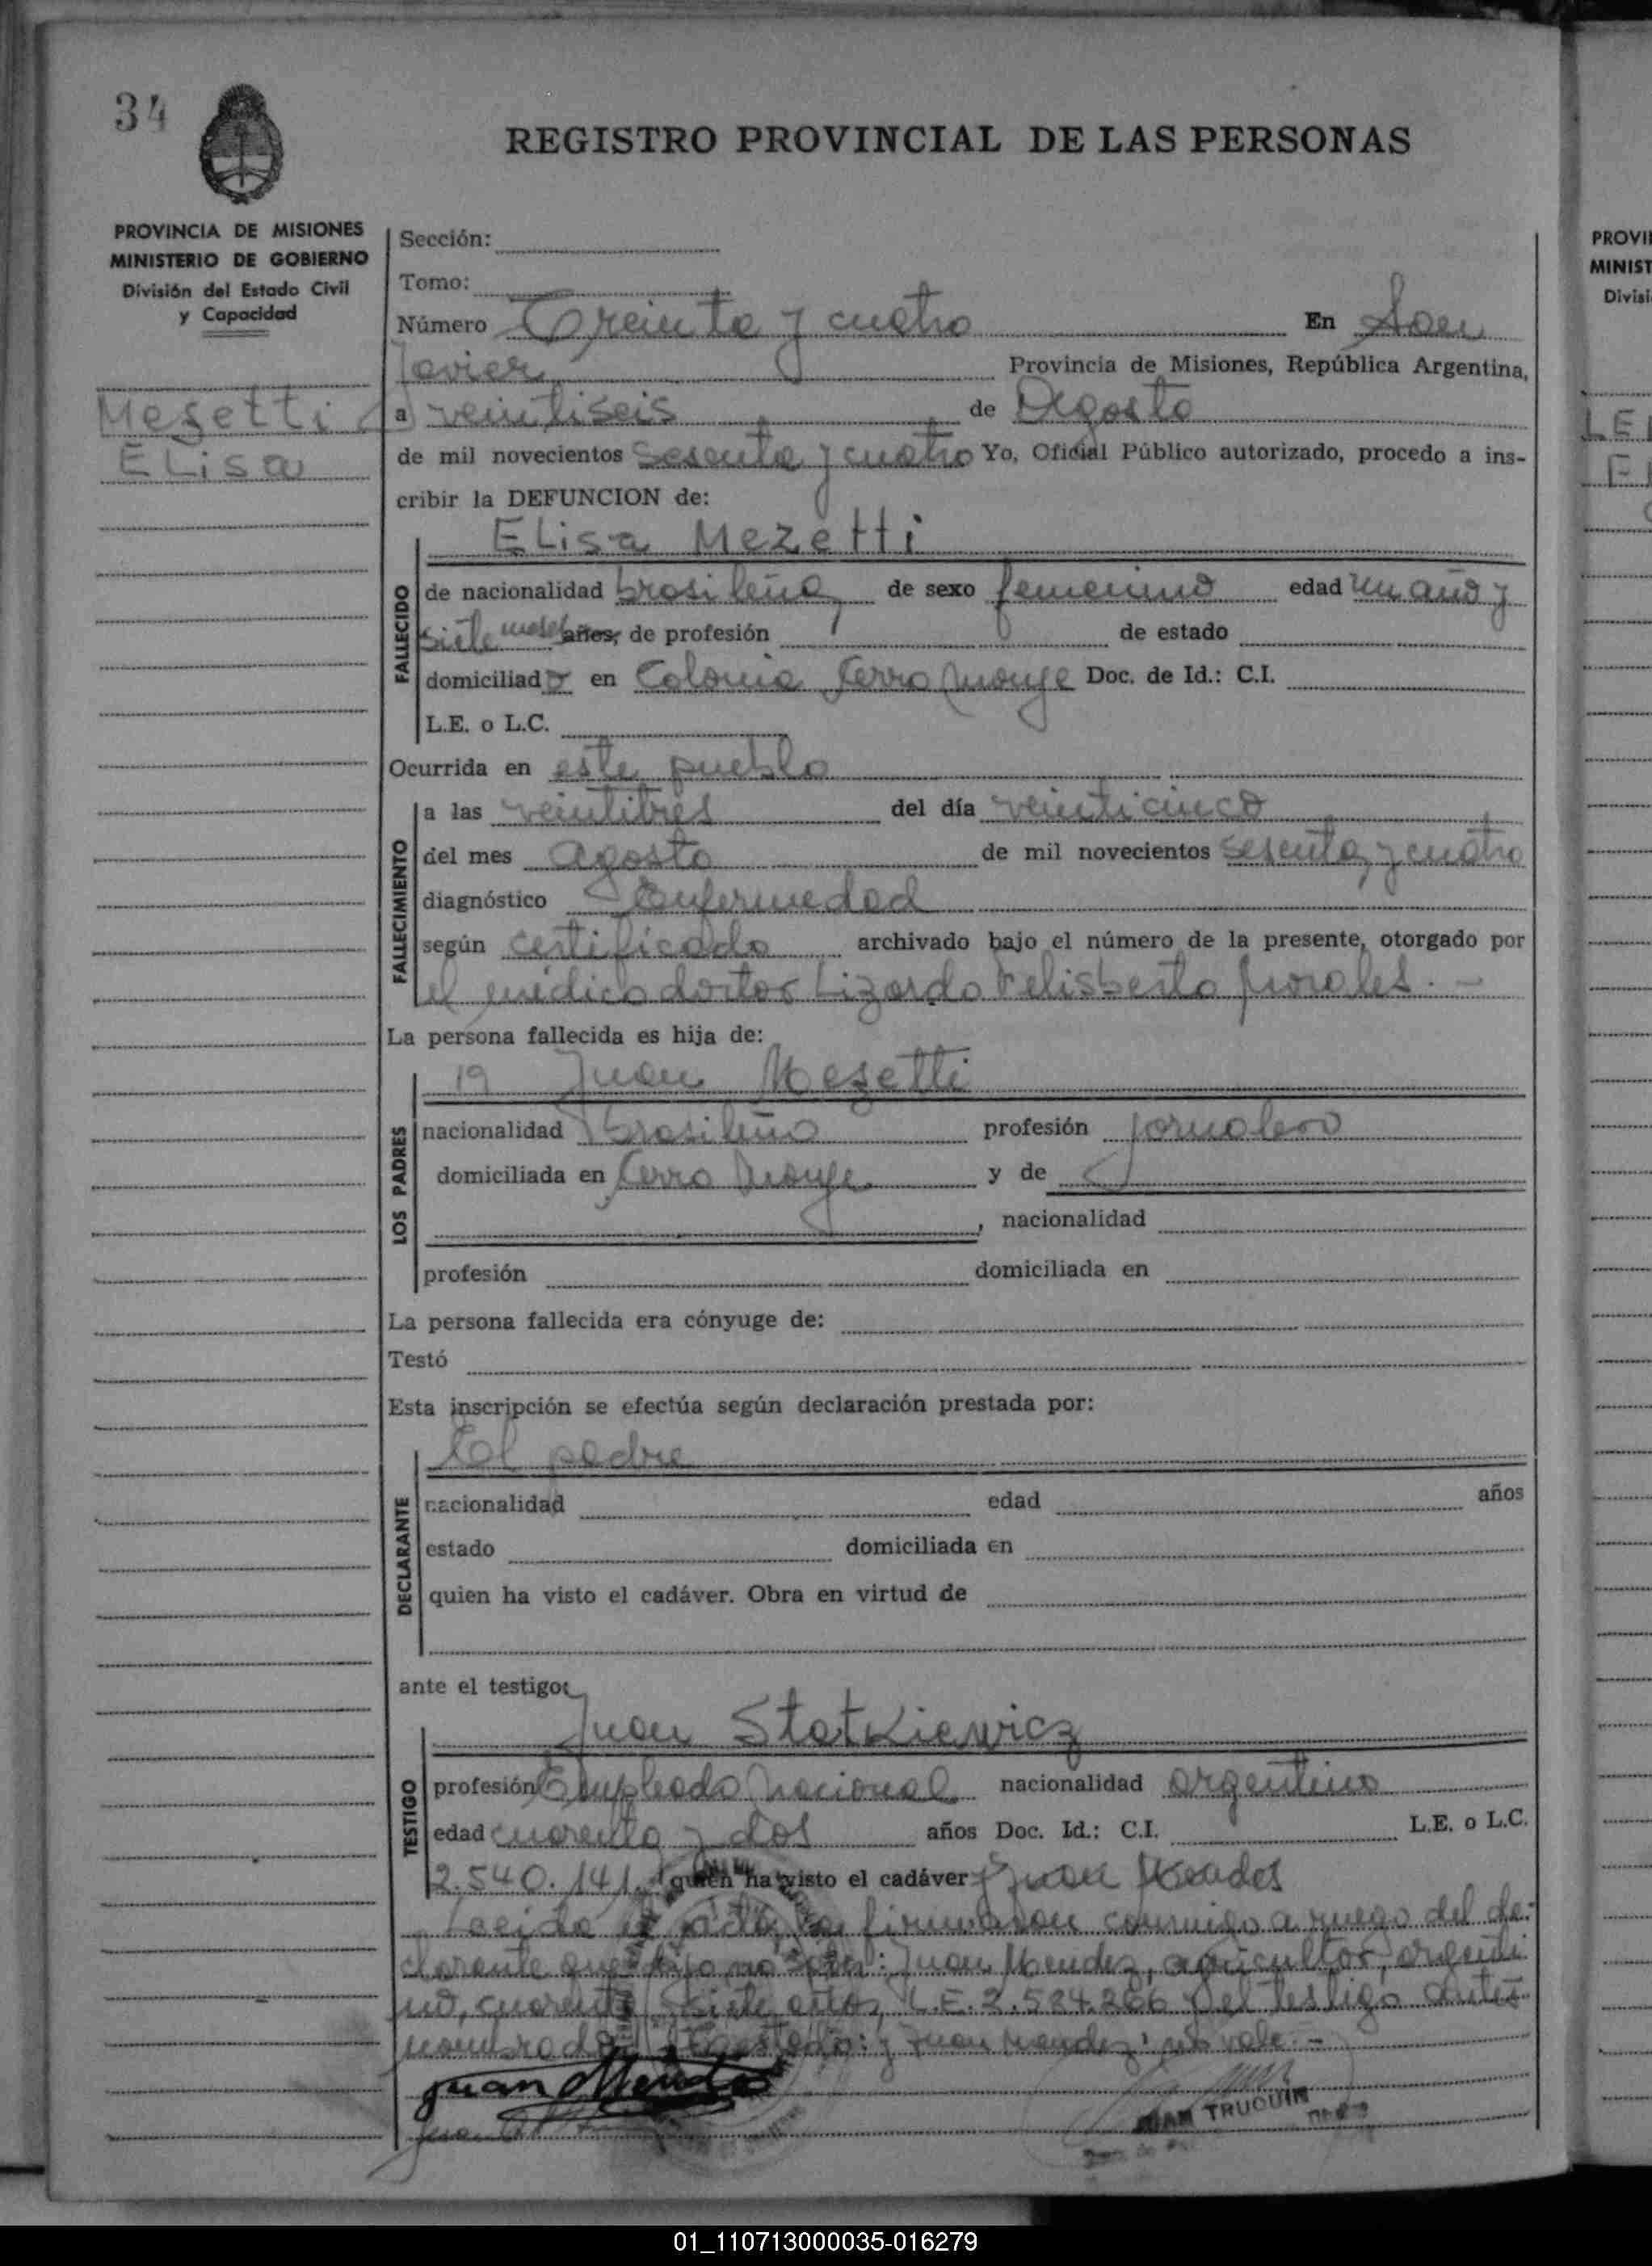 34
REGISTRO PROVINCIAL DE LAS PERSONAS
PROVINCIA DE MISIONES
MINISTERIO DE GOBIERNO
División del Estado Civil
y Capacidad
Mesetti
ELisa
Sección:
Tomo:
Número Treinta y cuatro En San
Javier Provincia de Misiones, República Argentina,
a veintiseis de Agosto
de mil novecientos sesenta y cuatro Yo, Oficial Público autorizado, procedo a ins-
cribir la DEFUNCION de:
ELisa Mezetti
FALLECIDO
de nacionalidad brasileña, de sexo femenino edad un año y
siete meses años, de profesión de estado
domiciliado en Colonia Cerro Monje Doc. de Id.: C.I.
L.E. o L.C.
Ocurrida en este pueblo
FALLECIMIENTO
a las veintitres del día veinticinco
del mes Agosto de mil novecientos sesenta y cuatro
diagnóstico Enfermedad
según certificado archivado bajo el número de la presente, otorgado por
el médico doctor Lizardo Felisberto Morales. -
La persona fallecida es hija de:
LOS PADRES
19 Juan Mesetti
nacionalidad brasileño profesión jornalero
domiciliada en Cerro Monje y de
, nacionalidad
profesión domiciliada en
La persona fallecida era cónyuge de:
Testó
Esta inscripción se efectúa según declaración prestada por:
El padre
DECLARANTE
nacionalidad edad años
estado domiciliada en
quien ha visto el cadáver. Obra en virtud de
ante el testigo:
Juan Statkiewicz
TESTIGO
profesión Empleado Nacional nacionalidad argentino
edad cuarenta y dos años Doc. Id.: C.I. L.E. o L.C.
2.540.141. quien ha visto el cadáver y Juan Mendes
Leida el acta, la firmaron conmigo a ruego del de-
clarante que dijo no : Juan Mendez, agricultor, argenti
no, cuarenta siete años, L.E. 2.524.266 y el testigo antes
nombrado. : y Juan Mendez: no vale. -
Juan Mendez
JUAN TRUQUIN
PROVI
MINIST
Divisi
LE
01_110713000035-016279